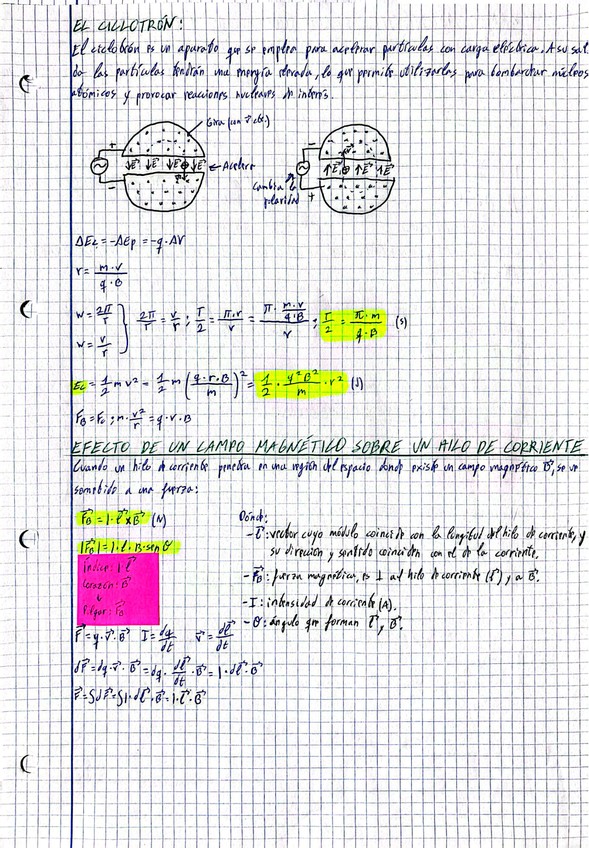 EL CICLOTRÓN:
El ciclotrón es un aparato que se emplea para acelerar partículas con carga eléctrica. A su sali
da las partículas tendrán una energía elevada, lo que permite utilizarlas para bombardear núcleos
atómicos y provocar reacciones nucleares de interés.
Gira (con v⃗ cte.)
+ −
E⃗ E⃗ E⃗ E⃗
← Acelera
− +
E⃗ E⃗ E⃗
Cambia la
ΔEc = -ΔEp = -q·ΔV
r = m·v / q·B
w = 2π/T
w = v/r
2π/T = v/r ; T/2 = π·r/v = (π· m·v/q·B)/v ; T/2 = π·m/q·B (s)
Ec = 1/2 m v² = 1/2 m (q·r·B/m)² = 1/2 · q²B²/m · r² (J)
F_B = Fc ; m·v²/r = q·v·B
EFECTO DE UN CAMPO MAGNÉTICO SOBRE UN HILO DE CORRIENTE
Cuando un hilo de corriente penetra en una región del espacio donde existe un campo magnético B⃗, se ve
sometido a una fuerza:
F⃗_B = I·l⃗ x B⃗ (N)
|F⃗_B| = I·l·B·sen θ
Índice: I·l⃗
Corazón: B⃗
↓
Pulgar: F⃗_B
Dónde:
- l⃗: vector cuyo módulo coincide con la longitud del hilo de corriente, y
su dirección y sentido coinciden con el de la corriente.
- F⃗_B: fuerza magnética, es ⊥ al hilo de corriente (l⃗), y a B⃗.
- I: intensidad de corriente (A).
- θ: ángulo que forman l⃗, y B⃗.
F⃗ = q·v⃗·B⃗ I = dq/dt v⃗ = dl⃗/dt
dF⃗ = dq·v⃗·B⃗ = dq· dl⃗/dt ·B⃗ = I·dl⃗·B⃗
F⃗ = ∫dF⃗ = ∫I·dl⃗·B⃗ = I·l⃗·B⃗